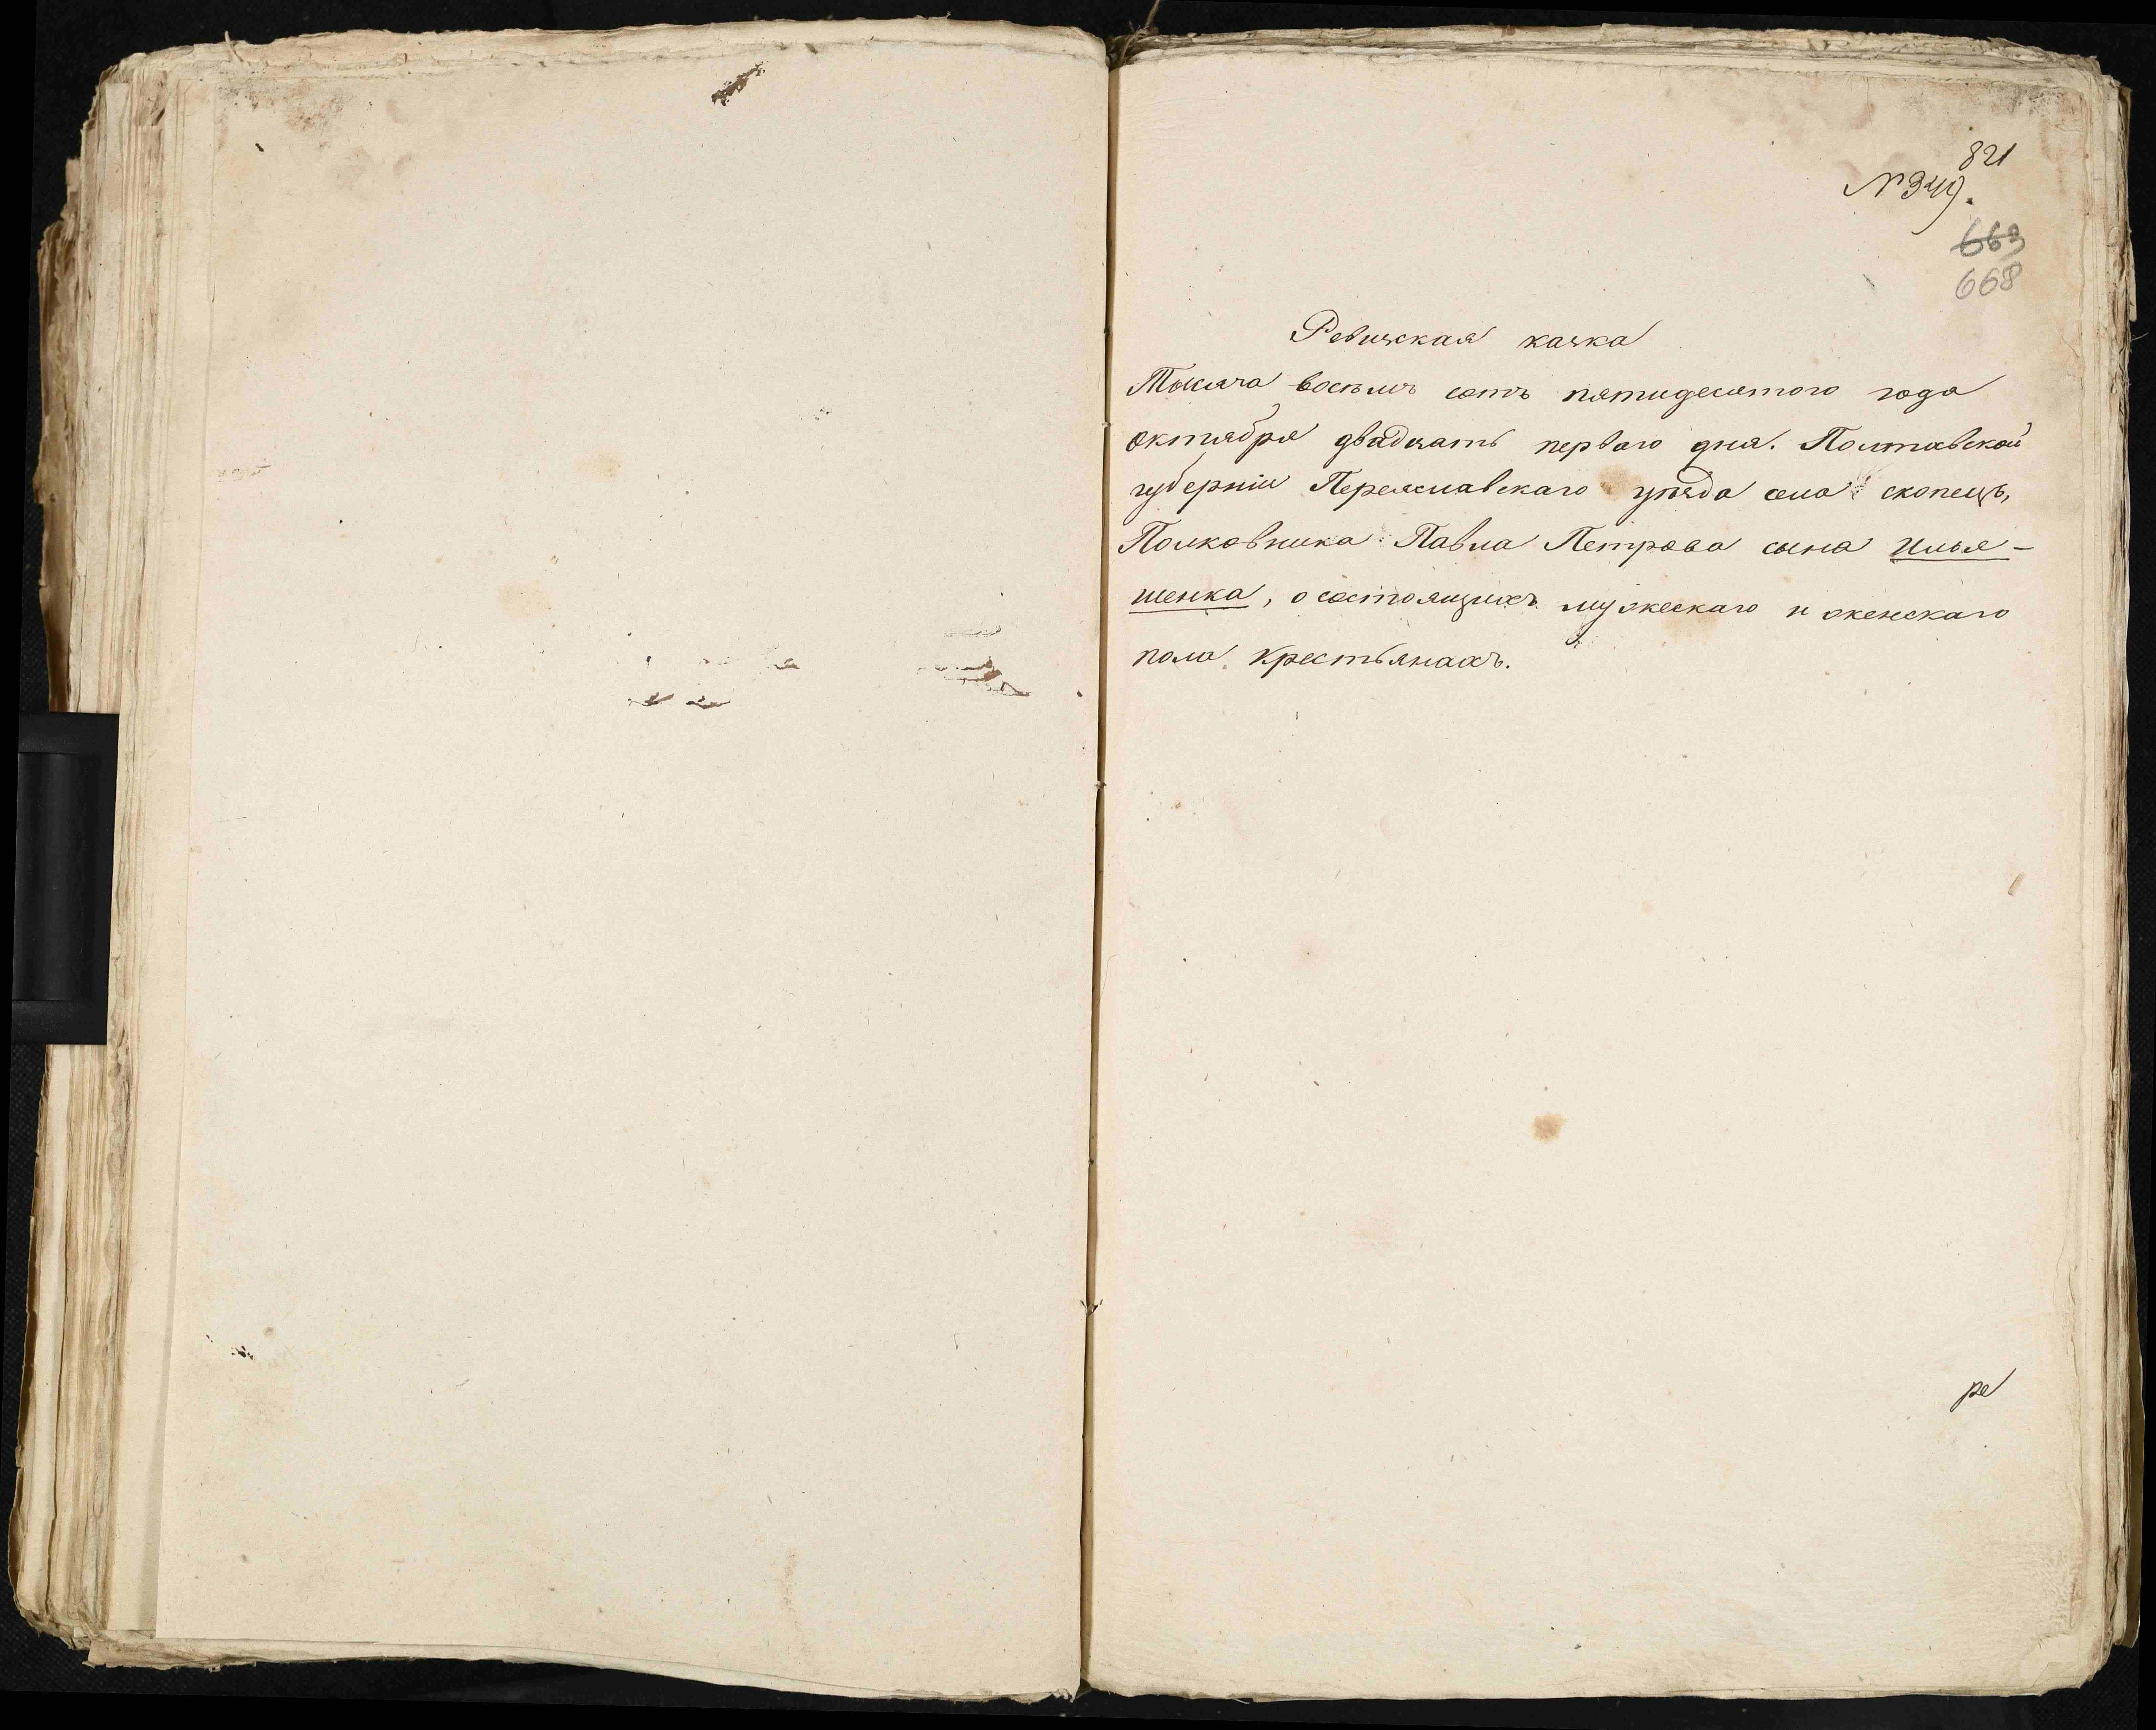 821
№ 349.
669
668
Ревизская казка
Тысяча восемь сотъ пятидесятого года
октября двадцать перваго дня. Полтавской
губерніи Переяславскаго уезда села скопецъ,
Полковника Павла Петрова сына Илья-
шенка, о состоящихъ мужескаго и женскаго
пола крестьянахъ.
ре